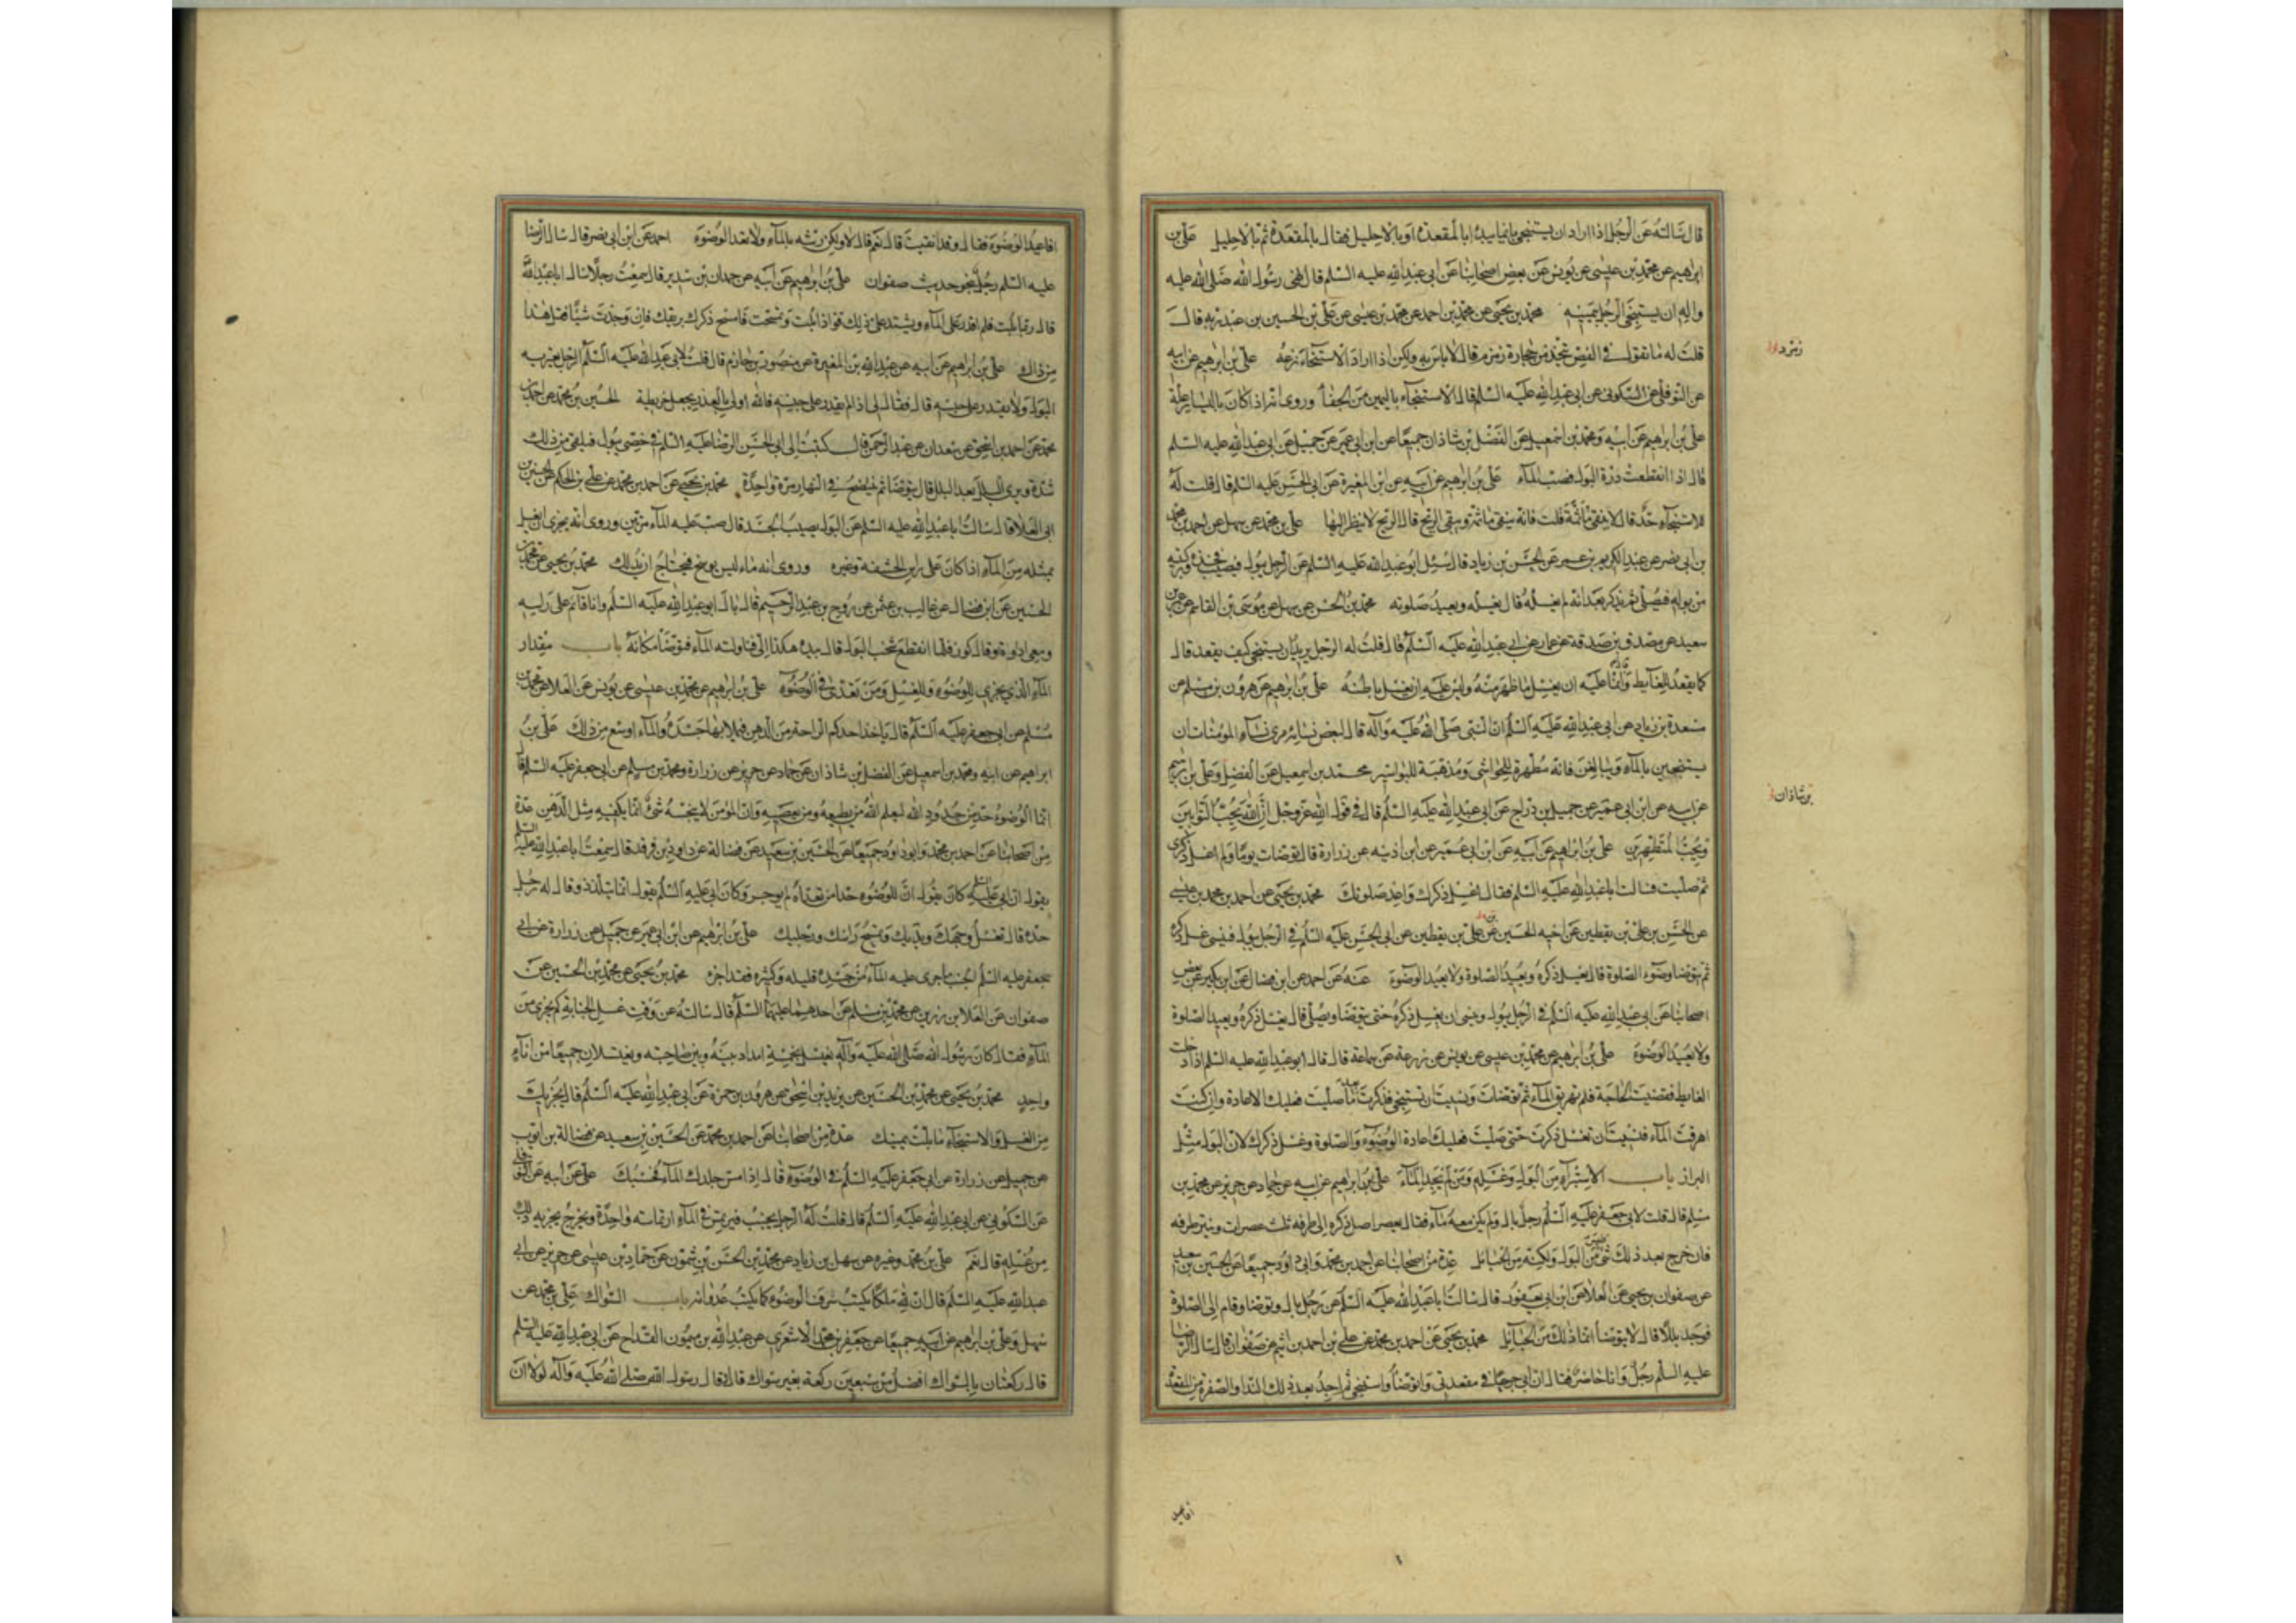 قال سالته عن الرجل اذا اراد ان يستنجى بايما يبدء ابالمقعدة او بالاحليل فقال بالمقعدة ثم بالاحليل علي بن
ابراهيم عن محمد بن عيسى عن يونس عن بعض اصحابنا عن ابي عبد الله عليه السلم قال نهى رسول الله صلى الله عليه
واله ان يستنجى الرجل بيمينه محمد بن يحيى عن محمد بن احمد عن محمد بن عيسى عن علي بن الحسين بن عبد ربه قال
قلت له ما تقول في الفص يتخذ من حجارة زمزم قال لا باس به ولكن اذا اراد الاستنجاء نزعه علي بن ابراهيم عن ابيه
زمرد
عن النوفلي عن السكوني عن ابي عبد الله عليه السلم قال الاستنجاء باليمين من الجفاء وروى انه اذا كان باليسار علة
علي بن ابراهيم عن ابيه ومحمد بن اسمعيل عن الفضل بن شاذان جميعا عن ابن ابي عمير عن جميل عن ابي عبد الله عليه السلم
قال اذا انقطعت درة البول فصب الماء علي بن ابراهيم عن ابيه عن ابن المغيرة عن ابي الحسن عليه السلم قال قلت له
للاستنجاء حد قال لا ينقى ما ثمة قلت فانه ينقى ما ثمة ويبقى الريح قال الريح لا ينظر اليها علي بن محمد عن سهل عن احمد بن محمد
بن ابي نصر عن عبد الكريم بن عمرو عن الحسن بن زياد قال سئل ابو عبد الله عليه السلم عن الرجل يبول فيصيب فخذه وركبته
من بوله فيصلي ثم يذكر بعد انه لم يغسله قال يغسله ويعيد صلوته محمد بن الحسن عن سهل عن موسى بن القاسم عن عمرو بن
سعيد عن مصدق بن صدقة عن عمار عن ابي عبد الله عليه السلم قال قلت له الرجل يريد ان يستنجي كيف يقعد قال
كما يقعد للغائط وقال انما عليه ان يغسل ما ظهر منه وليس عليه ان يغسل باطنه علي بن ابراهيم عن هرون بن مسلم عن
مسعدة بن زياد عن ابي عبد الله عليه السلم ان النبي صلى الله عليه وآله قال لبعض نسائه مري نساء المؤمنات ان
يستنجين بالماء ويبالغن فانه مطهرة للحواشي ومذهبة للبواسير محمد بن اسمعيل عن الفضل وعلي بن ابرهيم
بن شاذان
عن ابيه عن ابن ابي عمير عن جميل بن دراج عن ابي عبد الله عليه السلم قال في قول الله عز وجل ان الله يحب التوابين
ويحب المتطهرين علي بن ابراهيم عن ابيه عن ابن ابي عمير عن ابن اذينه عن زرارة قال توضات يوما ولم اغسل ذكري
ثم صليت فسالت ابا عبد الله عليه السلم فقال اغسل ذكرك واعد صلوتك محمد بن يحيى عن احمد بن محمد بن عيسى
عن الحسن بن علي بن يقطين عن اخيه الحسين عن علي بن يقطين عن ابي الحسن عليه السلم في الرجل يبول فينسى غسل ذكره
ثم يتوضا وضوء الصلوة قال يغسل ذكره ويعيد الصلوة ولا يعيد الوضوء عنه عن احمد عن ابن فضال عن ابن بكير عن بعض
اصحابنا عن ابي عبد الله عليه السلم في الرجل يبول وينسى ان يغسل ذكره حتى يتوضا ويصلي قال يغسل ذكره ويعيد الصلوة
ولا يعيد الوضوء علي بن ابرهيم عن محمد بن عيسى عن يونس عن زرعة عن سماعة قال قال ابو عبد الله عليه السلم اذا دخلت
الغائط فقضيت الحاجة فلم تهريق الماء ثم توضات ونسيت ان تستنجي فذكرت بعد ما صليت فعليك الاعادة وان كنت
اهرقت الماء فنسيت ان تغسل ذكرك حتى صليت فعليك اعادة الوضوء والصلوة وغسل ذكرك لان البول مثل
البراز باب الاستبراء من البول وغسله ومن لم يجد الماء علي بن ابراهيم عن ابيه عن حماد عن حريز عن محمد بن
مسلم قال قلت لابي جعفر عليه السلم رجل بال ولم يكن معه ماء فقال يعصر اصل ذكره الى طرفه ثلث عصرات وينتر طرفه
فان خرج بعد ذلك شئ فليس من البول ولكنه من الحبائل عدة من اصحابنا عن احمد بن محمد وابي داود جميعا عن الحسين بن سعيد
عن صفوان بن يحيى عن العلا عن ابن ابي يعفور قال سالت ابا عبد الله عليه السلم عن رجل بال وتوضا وقام الى الصلوة
فوجد بللا قال لا يتوضأ انما ذلك من الحبائل محمد بن يحيى عن احمد بن محمد عن علي بن احمد بن اشيم عن صفوان قال سال الرضا
عليه السلم رجل وانا حاضر فقال ان بي جرحا في مقعدتي واتوضأ واستنجي ثم اجد بعد ذلك الندا والصفرة من المقعدة
افاعيد
افاعيد الوضوء فقال وقد انقيت قال نعم قال لا ولكن رشه بالماء ولا تعد الوضوء احمد عن ابن ابي نصر قال سال الرضا
عليه السلم رجل بنحو حديث صفوان علي بن ابراهيم عن ابيه عن حنان بن سدير قال سمعت رجلا سال ابا عبد الله
قال ربما بلت فلم اقدر على الماء ويشتد علي ذلك فقال اذا بلت وتمسحت فامسح ذكرك بريقك فان وجدت شيئا فقل هذا
من ذاك علي بن ابراهيم عن ابيه عن عبد الله بن المغيرة عن منصور بن حازم قال قلت لابي عبد الله عليه السلم الرجل يعتريه
البول ولا يقدر على حبسه قال فقال لي اذا لم يقدر على حبسه فالله اولى بالعذر يجعل خريطة الحسين بن محمد عن احمد بن
محمد عن احمد بن اسحق عن سعدان عن عبد الرحمن قال كتبت الى ابي الحسن الرضا عليه السلم في خصي يبول فيلقى من ذلك
شدة ويرى البلل بعد البلل قال يتوضا ثم ينضح في النهار مرة واحدة محمد بن يحيى عن احمد بن محمد عن علي بن الحكم عن الحسين بن
ابي العلا قال سالت ابا عبد الله عليه السلم عن البول يصيب الجسد قال صب عليه الماء مرتين وروى انه يجزى ان يغسل
بمثله من الماء اذا كان على راس الحشفة وغيره وروى انه ماء ليس بوسخ فيحتاج ان يدلك محمد بن يحيى عن محمد بن
الحسين عن ابن فضال عن غالب بن عثمن عن روح بن عبد الرحيم قال بال ابو عبد الله عليه السلم وانا قائم على راسه
ومعي اداوة وقال كوز فلما انقطع شخب البول قال بيده هكذا الي فناولته الماء فتوضا مكانه باب مقدار
الماء الذي يجزي للوضوء وللغسل ومن تعدى في الوضوء علي بن ابرهيم عن محمد بن عيسى عن يونس عن العلا عن محمد بن
مسلم عن ابي جعفر عليه السلم قال ياخذ احدكم الراحة من الدهن فيملا بها جسده والماء اوسع من ذلك علي بن
ابراهيم عن ابيه ومحمد بن اسمعيل عن الفضل بن شاذان عن حماد عن حريز عن زرارة ومحمد بن مسلم عن ابي جعفر عليه السلم قال
انما الوضوء حد من حدود الله ليعلم الله من يطيعه ومن يعصيه وان المؤمن لا ينجسه شئ انما يكفيه مثل الدهن عدة
من اصحابنا عن احمد بن محمد وابو داود جميعا عن الحسين بن سعيد عن فضالة عن داود بن فرقد قال سمعت ابا عبد الله عليه السلم
يقول ان ابي عليه السلم كان يقول ان للوضوء حدا من تعداه لم يوجر وكان ابي عليه السلم يقول انما يتلدد فقال له رجل
حده قال تغسل وجهك ويديك وتمسح رأسك ورجليك علي بن ابرهيم عن ابن ابي عمير عن جميل عن زرارة عن ابي
جعفر عليه السلم الجنب ما جرى عليه الماء من جسده قليله وكثيره فقد اجزه محمد بن يحيى عن محمد بن الحسين عن
صفوان عن العلا بن رزين عن محمد بن مسلم عن احدهما عليهما السلم قال سالته عن وقت غسل الجنابة كم يجزي من
الماء فقال كان رسول الله صلى الله عليه وآله يغتسل بخمسة امداد بينه وبين صاحبته ويغتسلان جميعا من اناء
واحد محمد بن يحيى عن محمد بن الحسين عن يزيد بن اسحق عن هرون بن حمزة عن ابي عبد الله عليه السلم قال يجزيك
من الغسل والاستنجاء ما بلت يمينك عدة من اصحابنا عن احمد بن محمد عن الحسين بن سعيد عن فضالة بن ايوب
عن جميل عن زرارة عن ابي جعفر عليه السلم في الوضوء قال اذا مس جلدك الماء فحسبك علي عن ابيه عن النوفلي
عن السكوني عن ابي عبد الله عليه السلم قال قلت له الرجل يجنب فيرتمس في الماء ارتماسه واحدة ويخرج يجزيه ذلك
من غسله قال نعم علي بن محمد وغيره عن سهل بن زياد عن محمد بن الحسن بن شمون عن حماد بن عيسى عن حريز عن ابي
عبد الله عليه السلم قال ان لله ملكا يكتب سرف الوضوء كما يكتب عدوانه باب السواك علي بن محمد عن
سهل وعلي بن ابراهيم عن ابيه جميعا عن جعفر بن محمد الاشعري عن عبد الله بن ميمون القداح عن ابي عبد الله عليه السلم
قال ركعتان بالسواك افضل من سبعين ركعة بغير سواك قال قال رسول الله صلى الله عليه وآله لولا ان